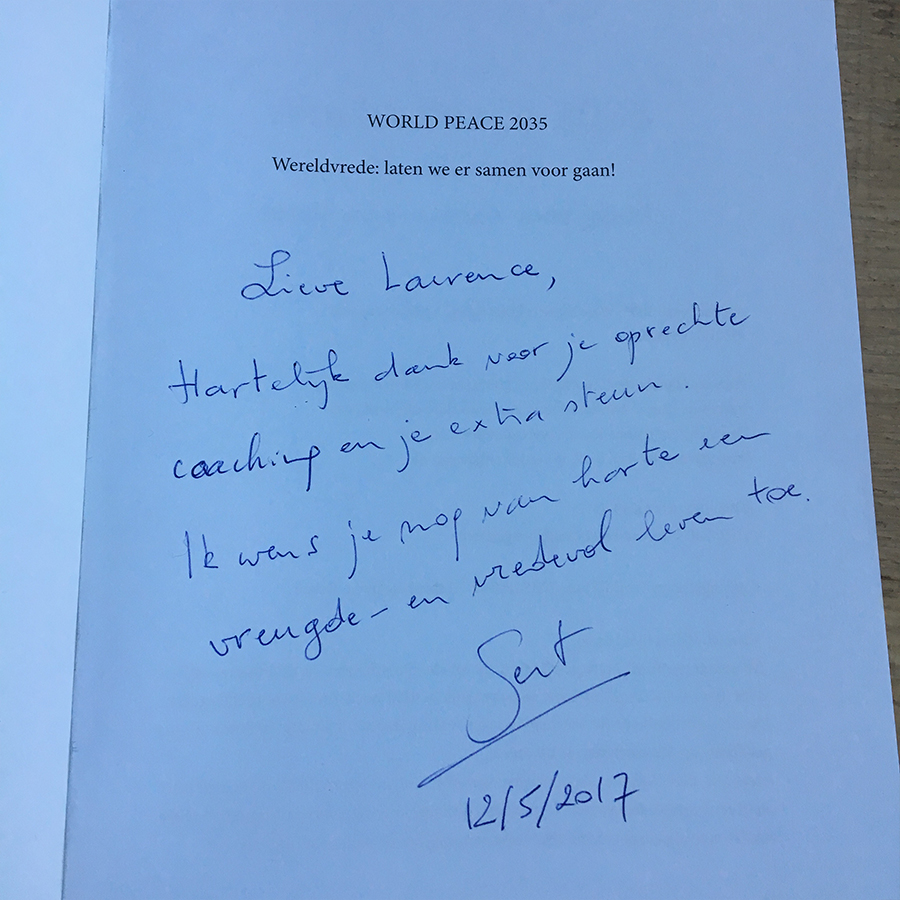 WORLD PEACE 2035
Wereldvrede: laten we er samen voor gaan!
Lieve Laurence,
Hartelijk dank voor je oprechte
coaching en je extra steun.
Ik wens je nog van harte een
vreugde- en vredevol leven toe.
Gert
12/5/2017